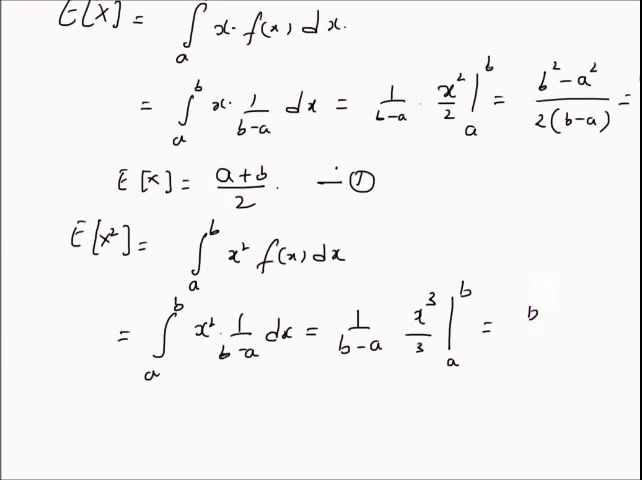 E[X] = ∫ₐ x· f(x) dx.
= ∫ₐᵇ x· 1/(b-a) dx = 1/(b-a) · x²/2 |ₐᵇ = (b²-a²)/(2(b-a)) =
E[X] = (a+b)/2. — ①
E[X²] = ∫ₐᵇ x² f(x) dx
= ∫ₐᵇ x²· 1/(b-a) dx = 1/(b-a) x³/3 |ₐᵇ = b